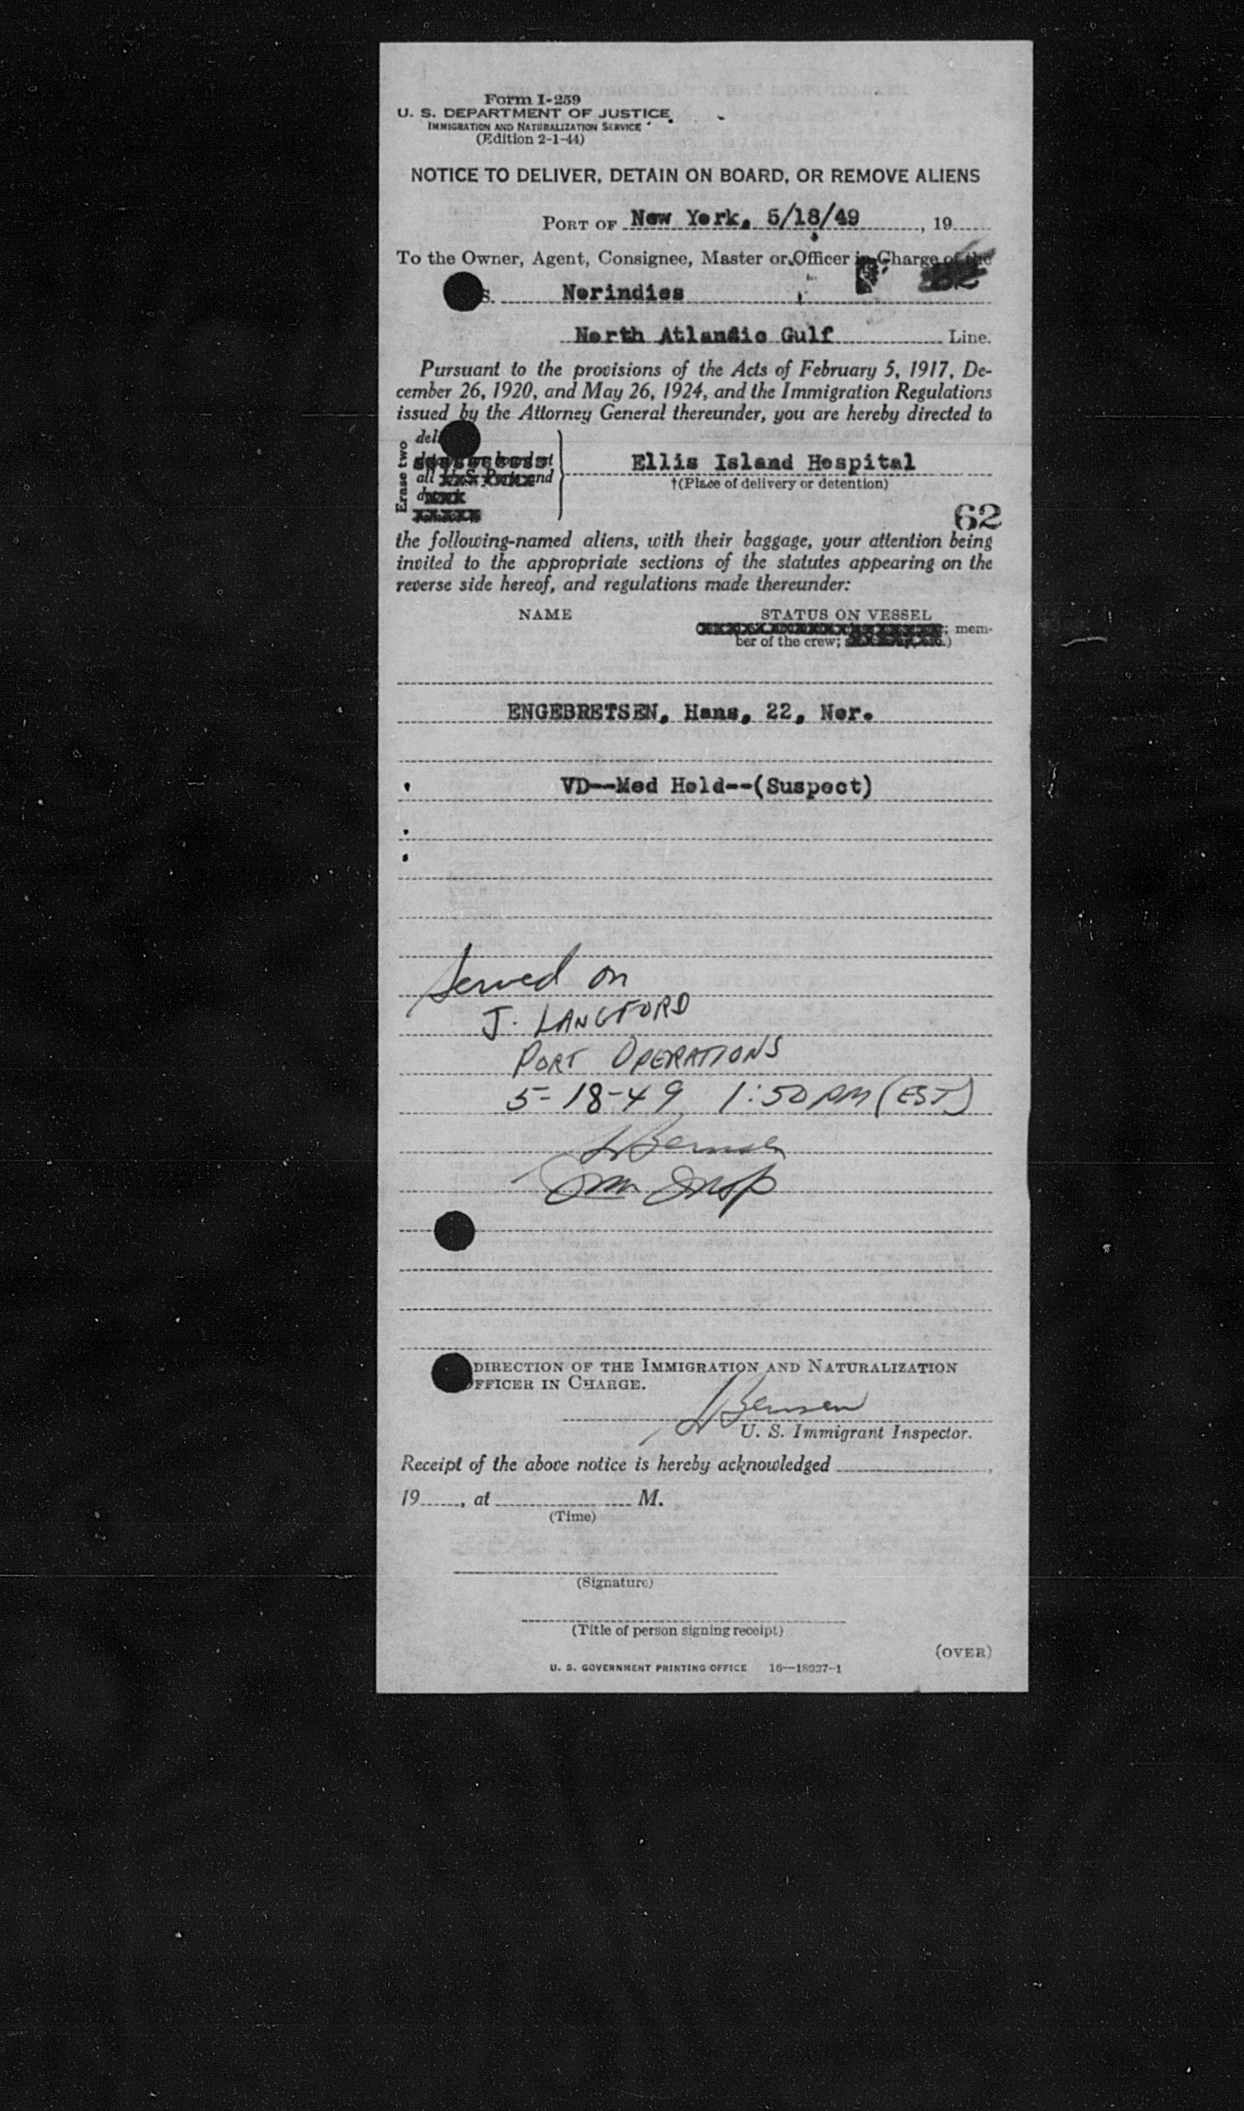 Form I-259
U. S. DEPARTMENT OF JUSTICE
IMMIGRATION AND NATURALIZATION SERVICE
(Edition 2-1-44)
NOTICE TO DELIVER, DETAIN ON BOARD, OR REMOVE ALIENS
PORT OF New York, 5/18/49, 19
To the Owner, Agent, Consignee, Master or Officer in Charge of the
S. Norindies
North Atlandic Gulf Line.
Pursuant to the provisions of the Acts of February 5, 1917, De-
cember 26, 1920, and May 26, 1924, and the Immigration Regulations
issued by the Attorney General thereunder, you are hereby directed to
Erase two
del
all and
Ellis Island Hospital
†(Place of delivery or detention)
62
the following-named aliens, with their baggage, your attention being
invited to the appropriate sections of the statutes appearing on the
reverse side hereof, and regulations made thereunder:
NAME STATUS ON VESSEL
; mem-
ber of the crew; )
ENGEBRETSEN, Hans, 22, Nor.
VD--Med Hold--(Suspect)
Served on
J. LANGFORD
PORT OPERATIONS
5-18-49 1:50 PM (EST)
Imm Insp
DIRECTION OF THE IMMIGRATION AND NATURALIZATION
OFFICER IN CHARGE.
U. S. Immigrant Inspector.
Receipt of the above notice is hereby acknowledged ,
19, at M.
(Time)
(Signature)
(Title of person signing receipt)
(OVER)
U. S. GOVERNMENT PRINTING OFFICE 16—18937-1